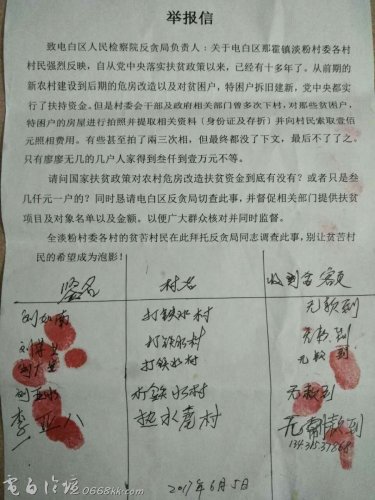 举报信
致电白区人民检察院反贪局负责人：关于电白区那霍镇淡粉村委各村
村民强烈反映，自从党中央落实扶贫政策以来，已经有十多年了。从前期的
新农村建设到后期的危房改造以及对贫困户，特困户拆旧建新，党中央都实
行了扶持资金。但是村委会干部及政府相关部门曾多次下村，对那些贫困户，
特困户的房屋进行拍照并提取相关资料（身份证及存折）并向村民索取壹佰
元照相费用。有些甚至拍了兩三次相，但最终都没了下文，最后不了了之。
只有廖廖无几的几户人家得到叁仟到壹万元不等。
请问国家扶贫政策对农村危房改造扶贫资金到底有没有？或者只是叁
几仟元一户的？同时恳请电白区反贪局切查此事，并督促相关部门提供扶贫
项目及对象名单以及金额。以便广大群众核对并同时监督。
全淡粉村委各村的贫苦村民在此拜托反贪局同志调查此事，别让贫苦村
民的希望成为泡影！
签名 村名 收到金额
打铁水村 无款到
打铁水村 无款到
打铁水村 无款到
打铁水村 无款到
李亚八 热水窝村 无款到
2017年6月5日
电白论坛
0668kk.com